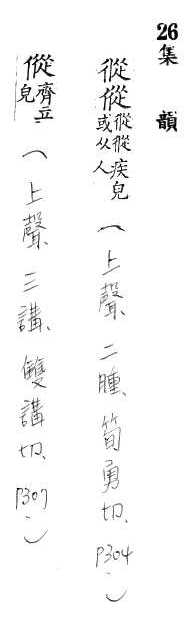 26 集韻
從傱從從疾皃或从人(上聲、二腫、筍勇切、P304)
傱齊立皃(上聲、三講、雙講切、P307)